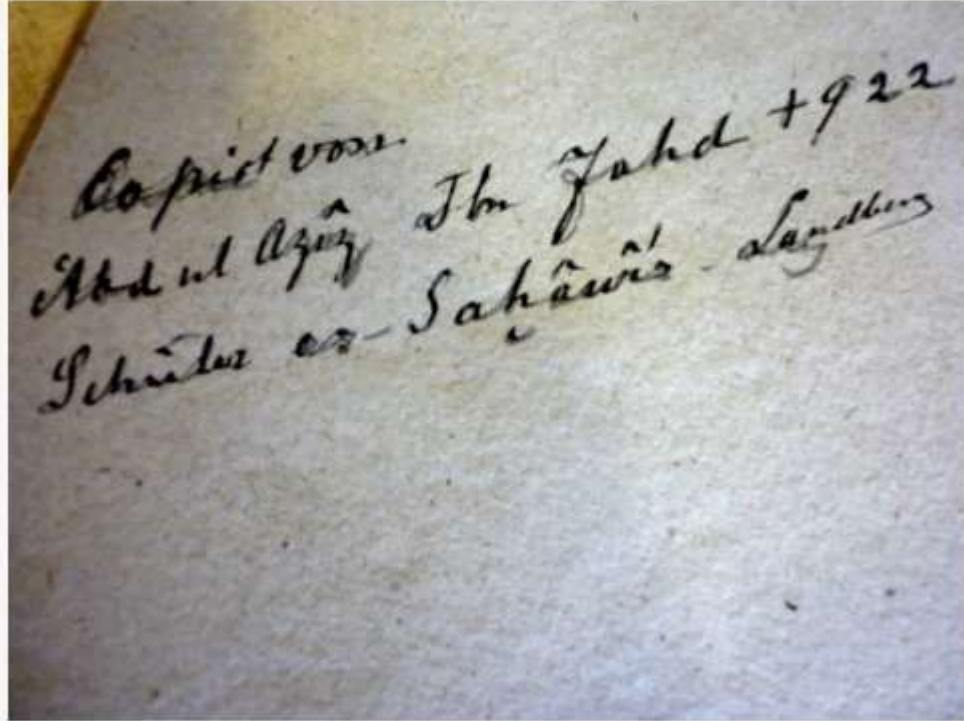 Copiet von
'Abd ul Azîz Ibn Fahd +922
Schüler es-Saḫâwî's Landberg